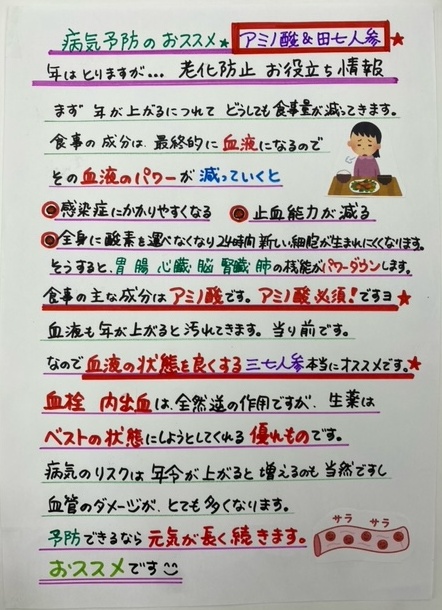 病気予防のおススメ★ アミノ酸&田七人参★
年はとりますが… 老化防止 お役立ち情報
まず 年が上がるにつれて どうしても食事量が減ってきます。
食事の成分は、最終的に血液になるので
その血液のパワーが減っていくと
◎感染症にかかりやすくなる ◎止血能力が減る
◎全身に酸素を運べなくなり24時間新しい細胞が生まれにくくなります。
そうすると、胃 腸 心臓 脳 腎臓 肺の機能がパワーダウンします。
食事の主な成分はアミノ酸です。アミノ酸必須!ですヨ★
血液も年が上がると汚れてきます。当り前です。
なので血液の状態を良くする三七人参本当にオススメです。★
血栓 内出血は、全然逆の作用ですが、生薬は
ベストの状態にしようとしてくれる優れものです。
病気のリスクは年令が上がると増えるのも当然ですし
血管のダメージが、とても多くなります。
サラ サラ
予防できるなら元気が長く続きます。
おススメです